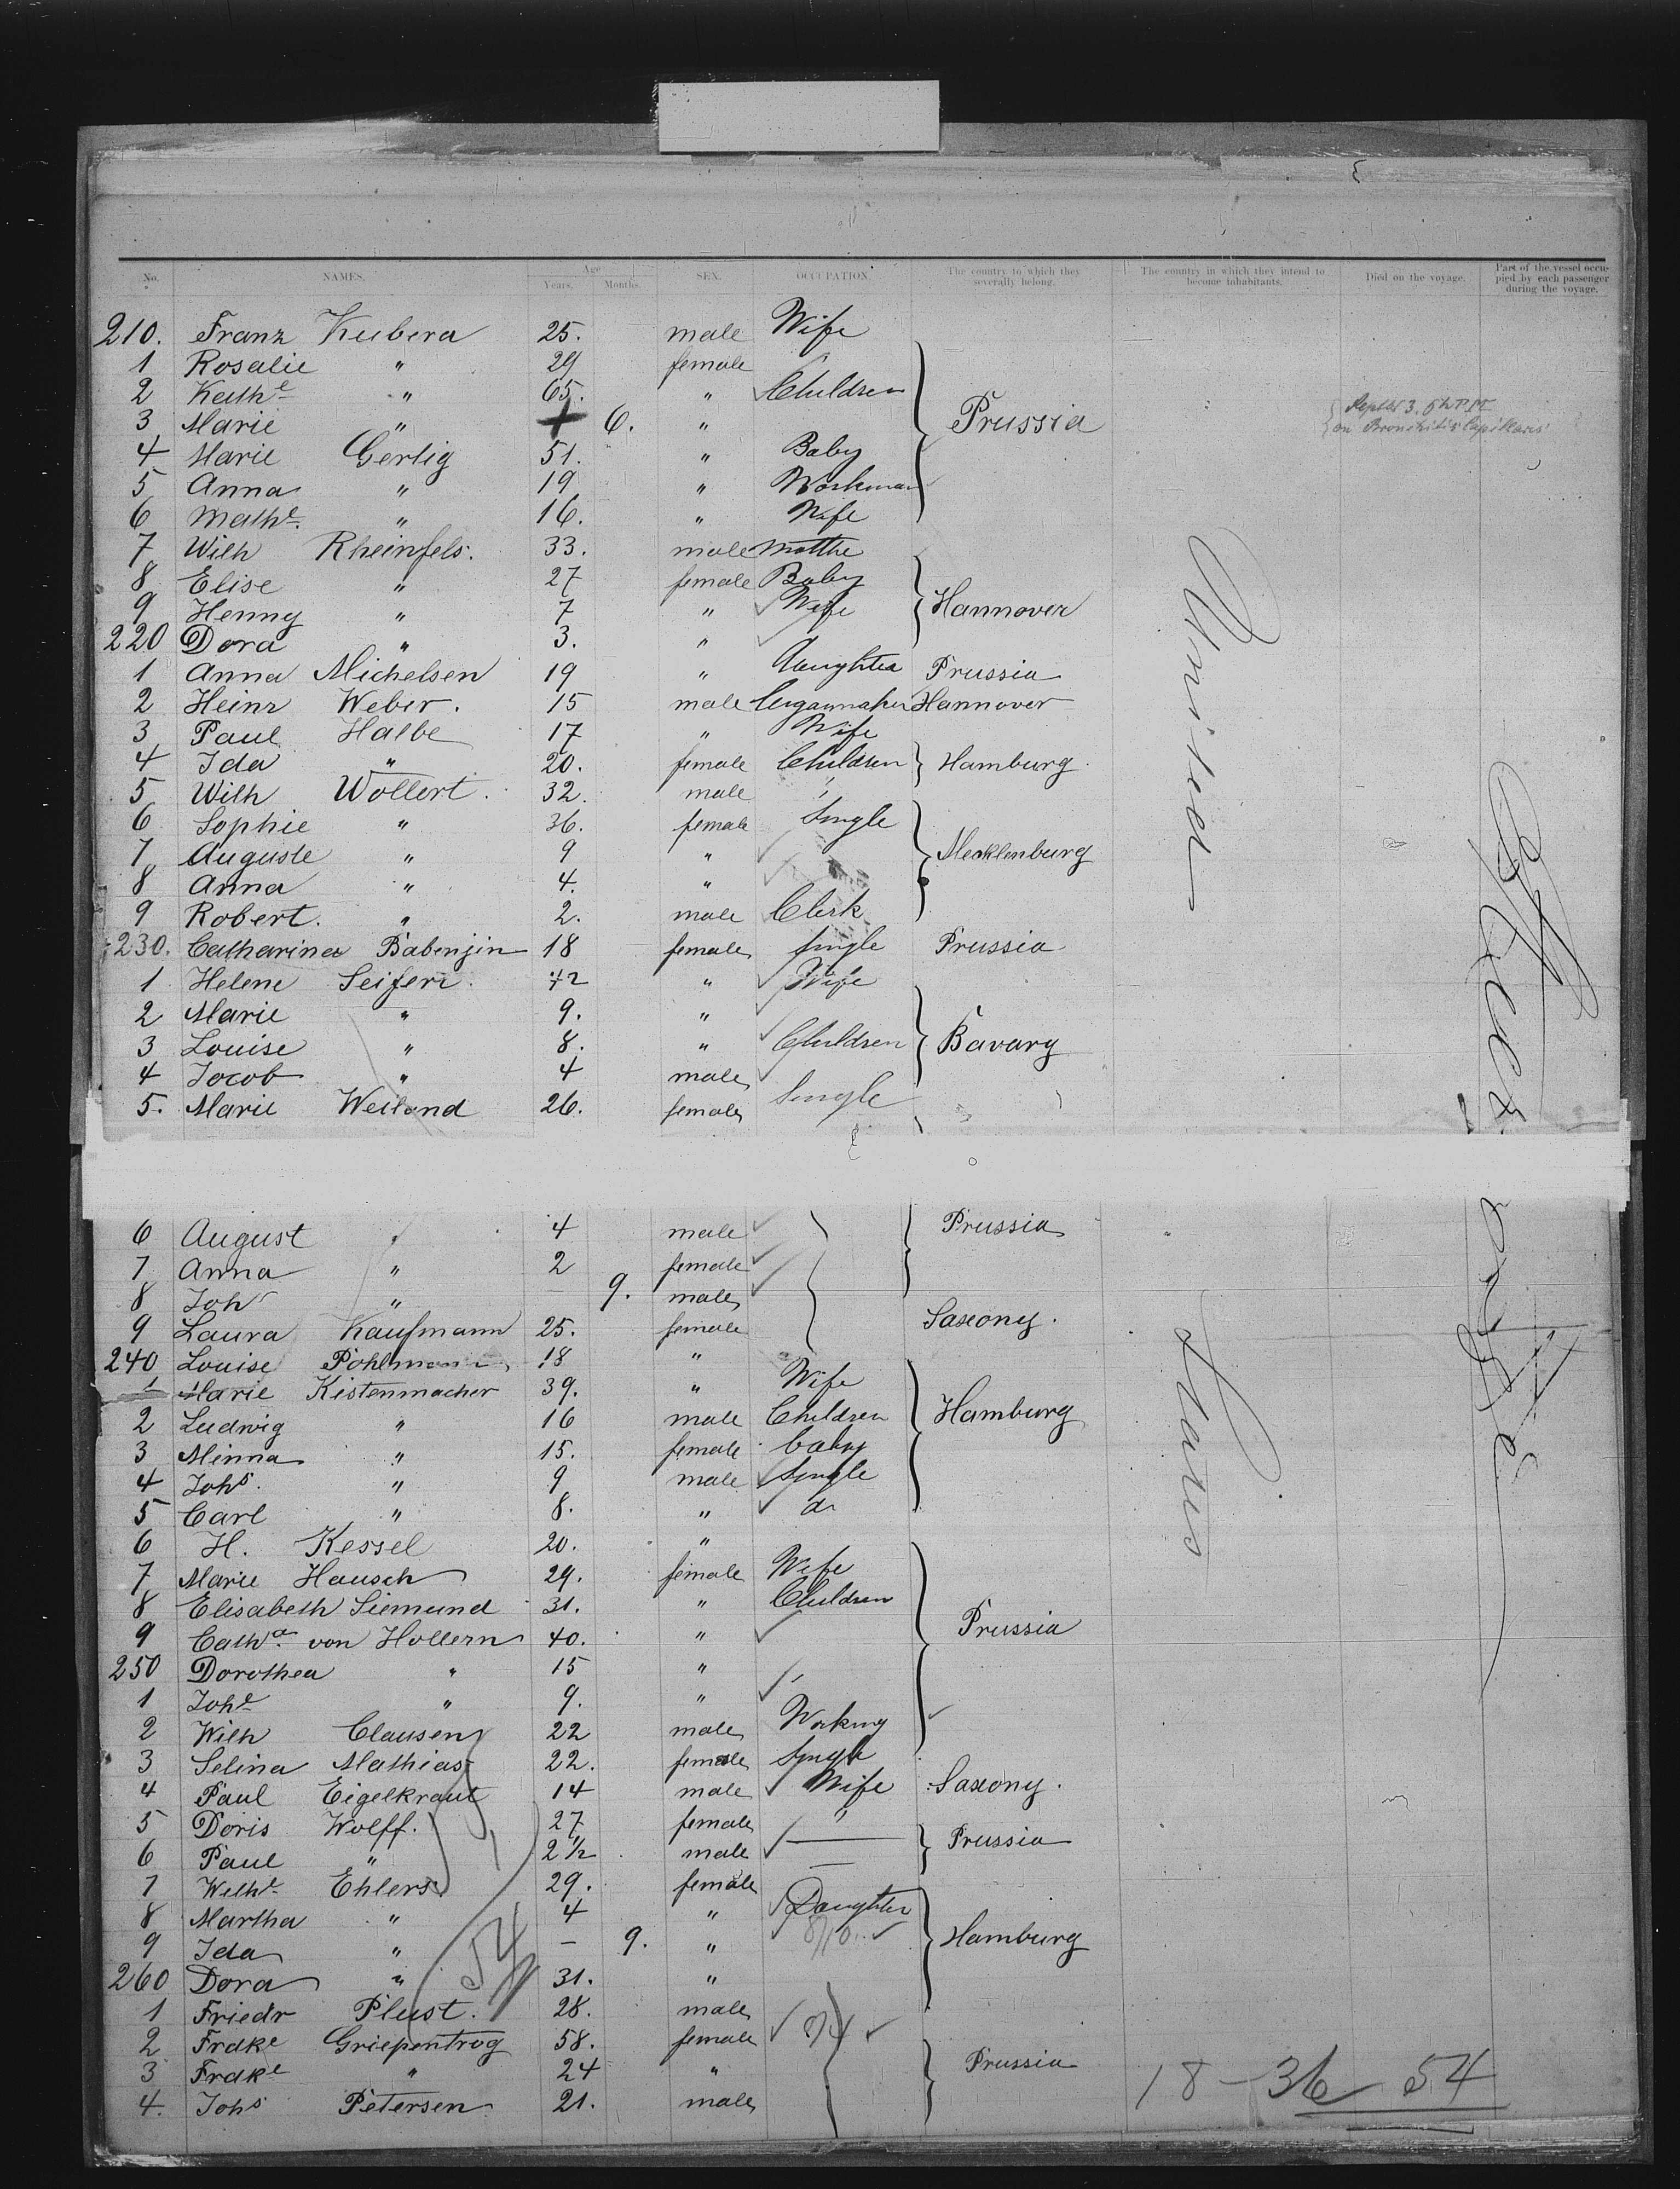 No. NAMES. Age Years. Months. SEX. OCCUPATION. The country to which they severally belong. The country in which they intend to become inhabitants. Died on the voyage. Part of the vessel occupied by each passenger during the voyage.
210. Franz Kubera 25. male Wife
1 Rosalie " 29 female
2 Kathe " 65. " Children
3 Marie " + 6. " Prussia
4 Marie Gerlig 51. " Baby
5 Anna " 19 " Workman
6 Mathe. " 16. " Wife
7 Wilh Rheinfels. 33. male
8 Elise " 27 female Baby
9 Henny " 7 " Wife Hannover
220 Dora " 3. "
1 Anna Michelsen 19 " daughter Prussia
2 Heinr Weber. 15 male Hannover
3 Paul Halbe 17 " Wife
4 Ida " 20. female Children Hamburg
5 Wilh Wollert. 32. male
6 Sophie " 36. female Single
7 Auguste " 9 " Mecklenburg
8 Anna " 4. "
9 Robert. " 2. male Clerk
230. Catharina Babenjin 18 female single Prussia
1 Helene Seifert 42 " Wife
2 Marie " 9. "
3 Louise " 8. " Children Bavary
4 Jacob " 4 male
5. Marie Weiland 26. female Single
United
6 August " 4 male Prussia
7 Anna " 2 female
8 Johs " 9. male
9 Laura Kaufmann 25. female Saxony.
240 Louise Pohlmann 18 "
1 Marie Kistenmacher 39. " Wife
2 Ludwig " 16 male Children Hamburg
3 Minna " 15. female baby
4 Johs. " 9 male Single
5 Carl " 8. " do
6 H. Kessel 20. "
7 Marie Hausch 29. female Wife
8 Elisabeth Siemund 31. " Children
9 Catha. von Hollern 40. " Prussia
250 Dorothea " 15 "
1 Johe " 9. "
2 Wilh Clausen 22 male Working
3 Selina Mathias 22. female Single
4 Paul Eigelkraut 14 male Wife Saxony.
5 Doris Wolff. 27 female
6 Paul " 2 1/2 male Prussia
7 Wilhe Ehlers 29. female
8 Martha " 4 " Daughter
9 Ida " – 9. " Hamburg
260 Dora " 31. "
1 Friedr Plust. 28. male
2 Frdke Griepentrog 58. female
3 Frdke " 24 " Prussia
4. Johs Petersen 21. male
States
54
18 – 36 54